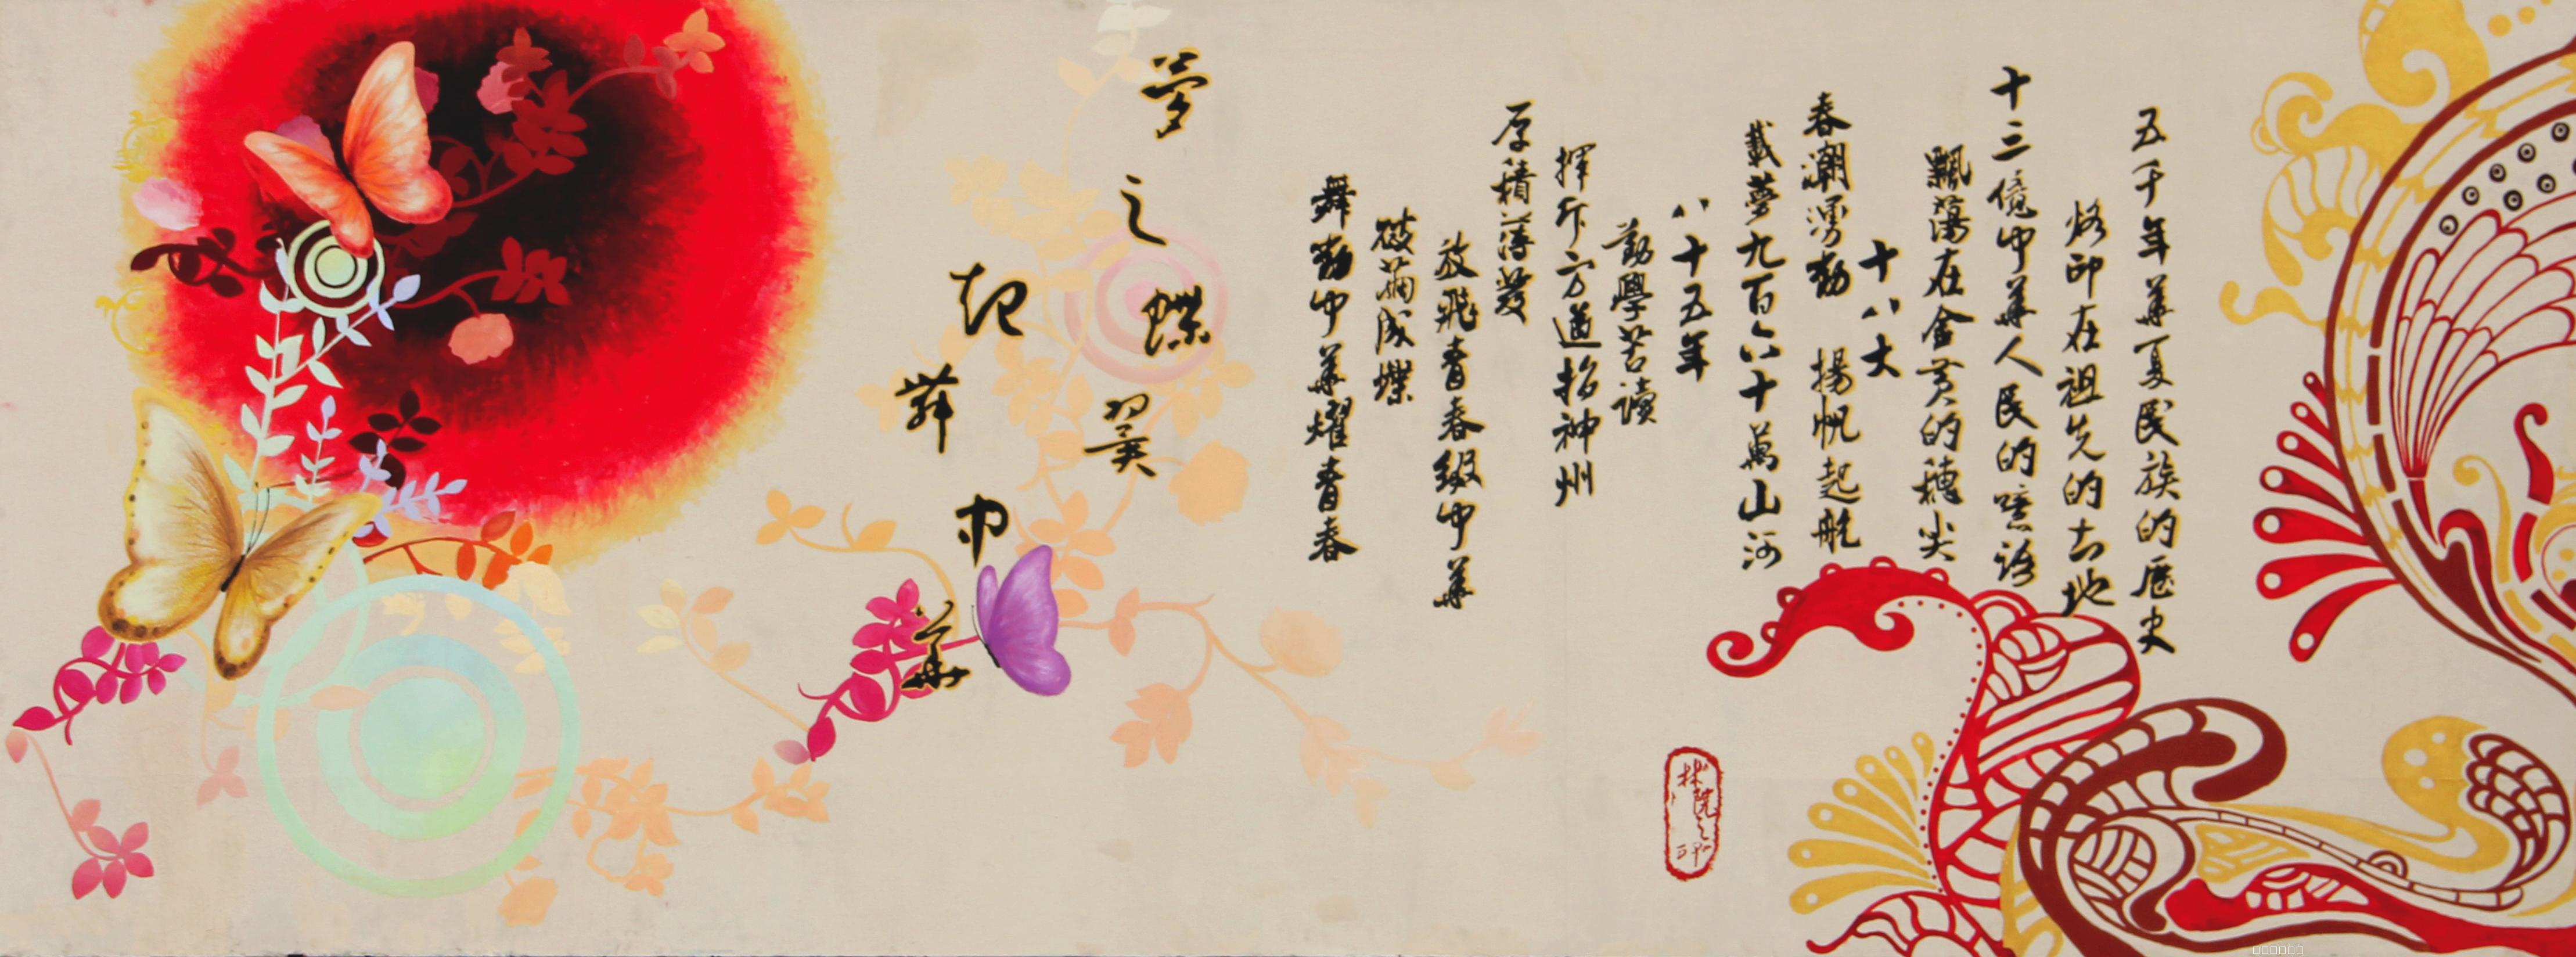 五千年華夏民族的歷史
烙印在祖先的土地
十三億中華人民的囈語
飄蕩在金黃的穗尖
十八大
春潮湧動 揚帆起航
載夢九百六十萬山河
八十五年
勤學苦讀
揮斥方遒指神州
厚積薄發
放飛青春綴中華
破繭成蝶
舞動中華耀青春
夢之蝶翼
起舞中華
林院之印